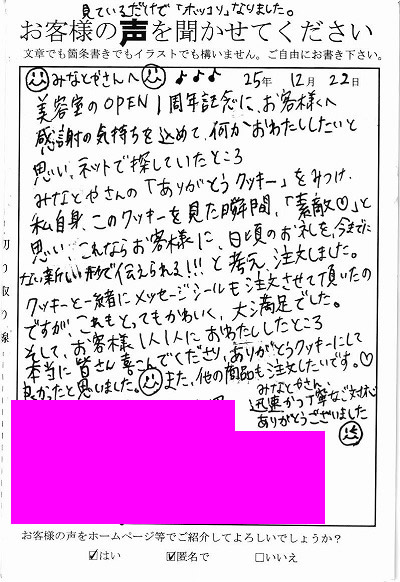 見ているだけで「ホッコリ」なりました。
お客様の声を聞かせてください
文章でも箇条書きでもイラストでも構いません。ご自由にお書き下さい。
みなとやさんへ ♪♪♪ 25年 12月 22日
美容室のOPEN1周年記念に、お客様へ
感謝の気持ちを込めて、何かおわたししたいと
思い、ネットで探していたところ
みなとやさんの「ありがとうクッキー」をみつけ、
私自身、このクッキーを見た瞬間、「素敵♡」と
思い、これならお客様に、日頃のお礼を、今までに
ない新しい形で伝えられる!!!と考え、注文しました。
クッキーと一緒にメッセージシールも注文させて頂いたの
ですが、これもとってもかわいく、大満足でした。
そして、お客様1人1人におわたししたところ
本当に皆さん喜こんでくださり、ありがとうクッキーにして
良かったと思いました。また、他の商品も注文したいです。♡
みなとやさん、
迅速かつ丁寧なご対応
ありがとうございました
切り取り線
お客様の声をホームページ等でご紹介してよろしいでしょうか?
☑はい ☑匿名で □いいえ